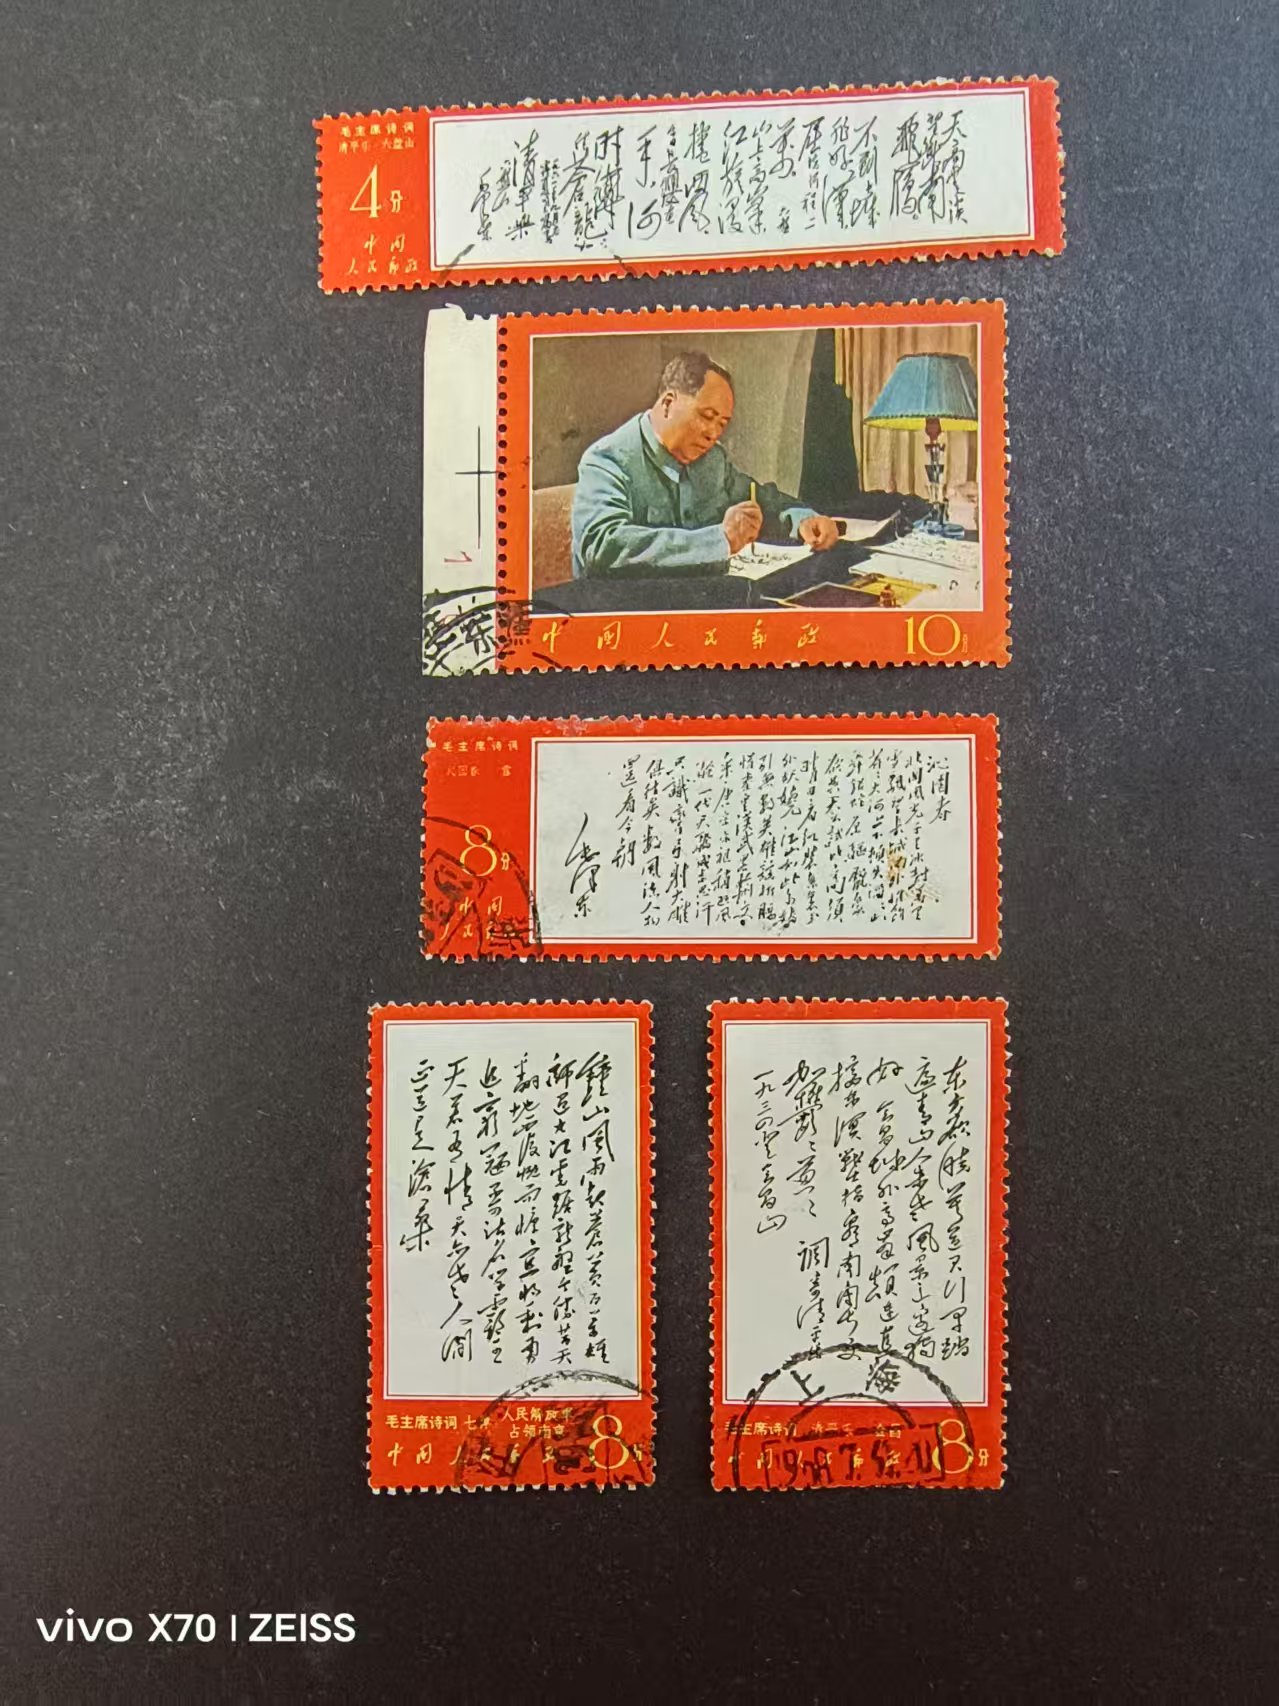 毛主席诗词
清平乐·六盘山
4分
中国
人民邮政
天高雲淡
望断南
飛雁
不到長城
非好漢
屈指行程二
萬 六盘
山上高峯
红旗漫
捲西風
今日長纓在
手 何
時縛
住苍龍
清平樂
毛泽东
7
中国人民邮政
10分
毛主席诗词
沁园春·雪
8分
中国
人民邮政
沁园春
北国风光千里冰封万里
雪飘望长城内外惟余
莽莽大河上下顿失滔滔山
舞银蛇原驱腊象
欲与天公试比高须
晴日看红装素裹分
外妖娆 江山如此多娇
引无数英雄竞折腰
惜秦皇汉武略输文
采唐宗宋祖稍逊风
骚一代天骄成吉思汗
只识弯弓射大雕
俱往矣数风流人物
还看今朝
毛泽东
鐘山風雨起蒼黄百萬雄
師过大江虎踞龍盤今勝昔天
翻地覆慨而慷宜将剩勇
追窮寇不可沽名学霸王
天若有情天亦老人間
正道是滄桑
毛主席诗词 七律·人民解放军
占领南京
中国人民邮政
8分
东方欲晓莫道君行早踏
遍青山人未老风景这边独
好 会昌城外高峰颠连直
接东溟战士指看南粤更
加鬱鬱葱葱 调寄清平乐
一九三四 登会昌山
毛主席诗词 清平乐·会昌
中国人民邮政
8分
上海
vivo X70 | ZEISS